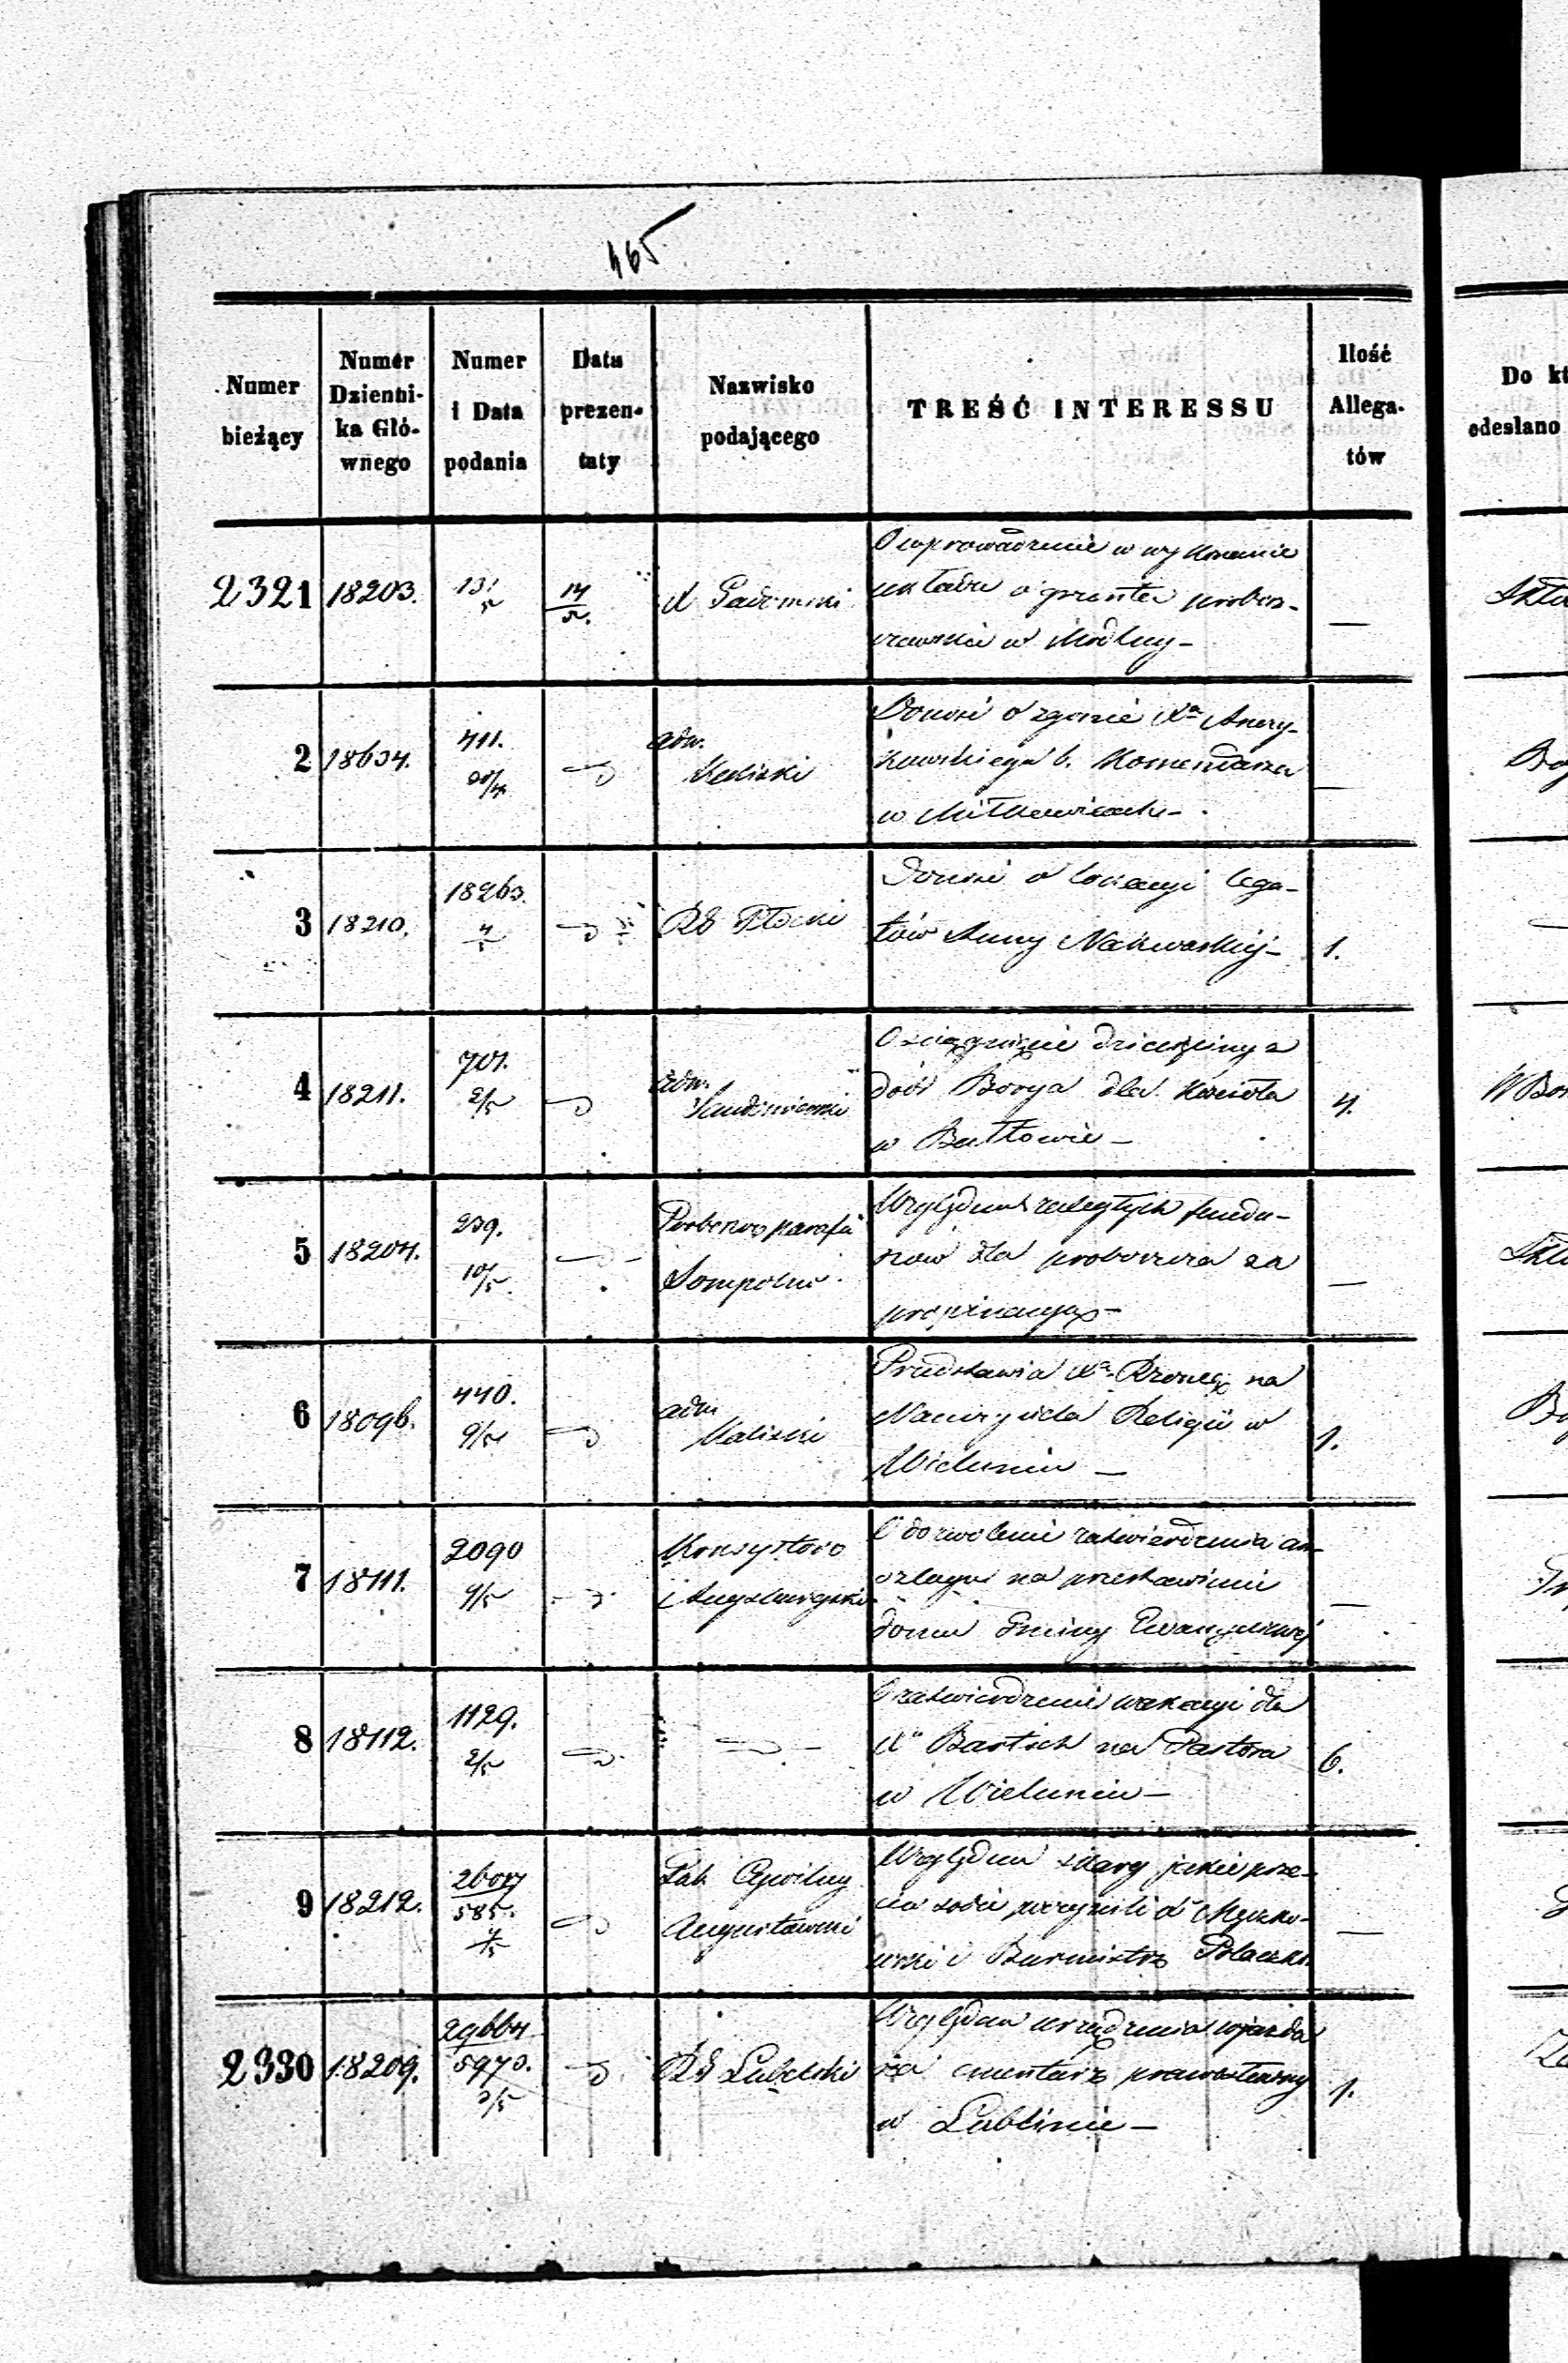 465
Numer bieżący
Numer Dzienni-ka Głó-wnego
Numer i Data podania
Data prezen-taty
Nazwisko podającego
TREŚĆ INTERESSU
Ilość Allega-tów
Do kt
odesłano
2321 18203. 131/5 14/5. X Gadomski
O wprowadzenie w wykonanie
układu o grunta probosz-
czowskie w Modlny —
—
2 18634. 411. 20/4 adm. Kaliski
Donosi o zgonie Xa
b. Komendarza
w Miłkowicach —
—
3 18210. 18263. 4/5 RG Płocki
Donosi o lokacyi lega-
tów Anny Nakwaskiéj —
1.
4 18211. 701. 2/5 adm. Sandomierski
O ściągnięcie dziesięciny z
dóbr Borya dla Kościoła
w Bałtowie —
4.
5 18204. 239. 10/5. Proboszcz parafii Sompolno
Względem zaległych fundu-
szow dla proboszcza za
propinacyą —
—
6 18096. 440. 9/5 adm Kaliski
Przedstawia Xa na
Nauczyciela Religii w
Wieluniu —
1.
7 18111. 2090 9/5 Konsystorz Augsburgski
O dozwolenie zatwierdzenia an-
szlagu na przestawienie
domu Gminy Ewangelickiéj
—
8 18112. 1129. 2/5
O zatwierdzenie wokacyi dla
Xa Bartsch na Pastora
w Wieluniu —
6.
9 18212. 26017/585. 4/5 Gub Cywilny Augustowski
Względem skarg jakie prze-
ciw sobie
i Burmistrz
—
2330 18209. 29664 5973. 3/5 RG Lubelski
Względem urządzenia wjazdu
na cmentarz prawosławny
w Lublinie —
1.